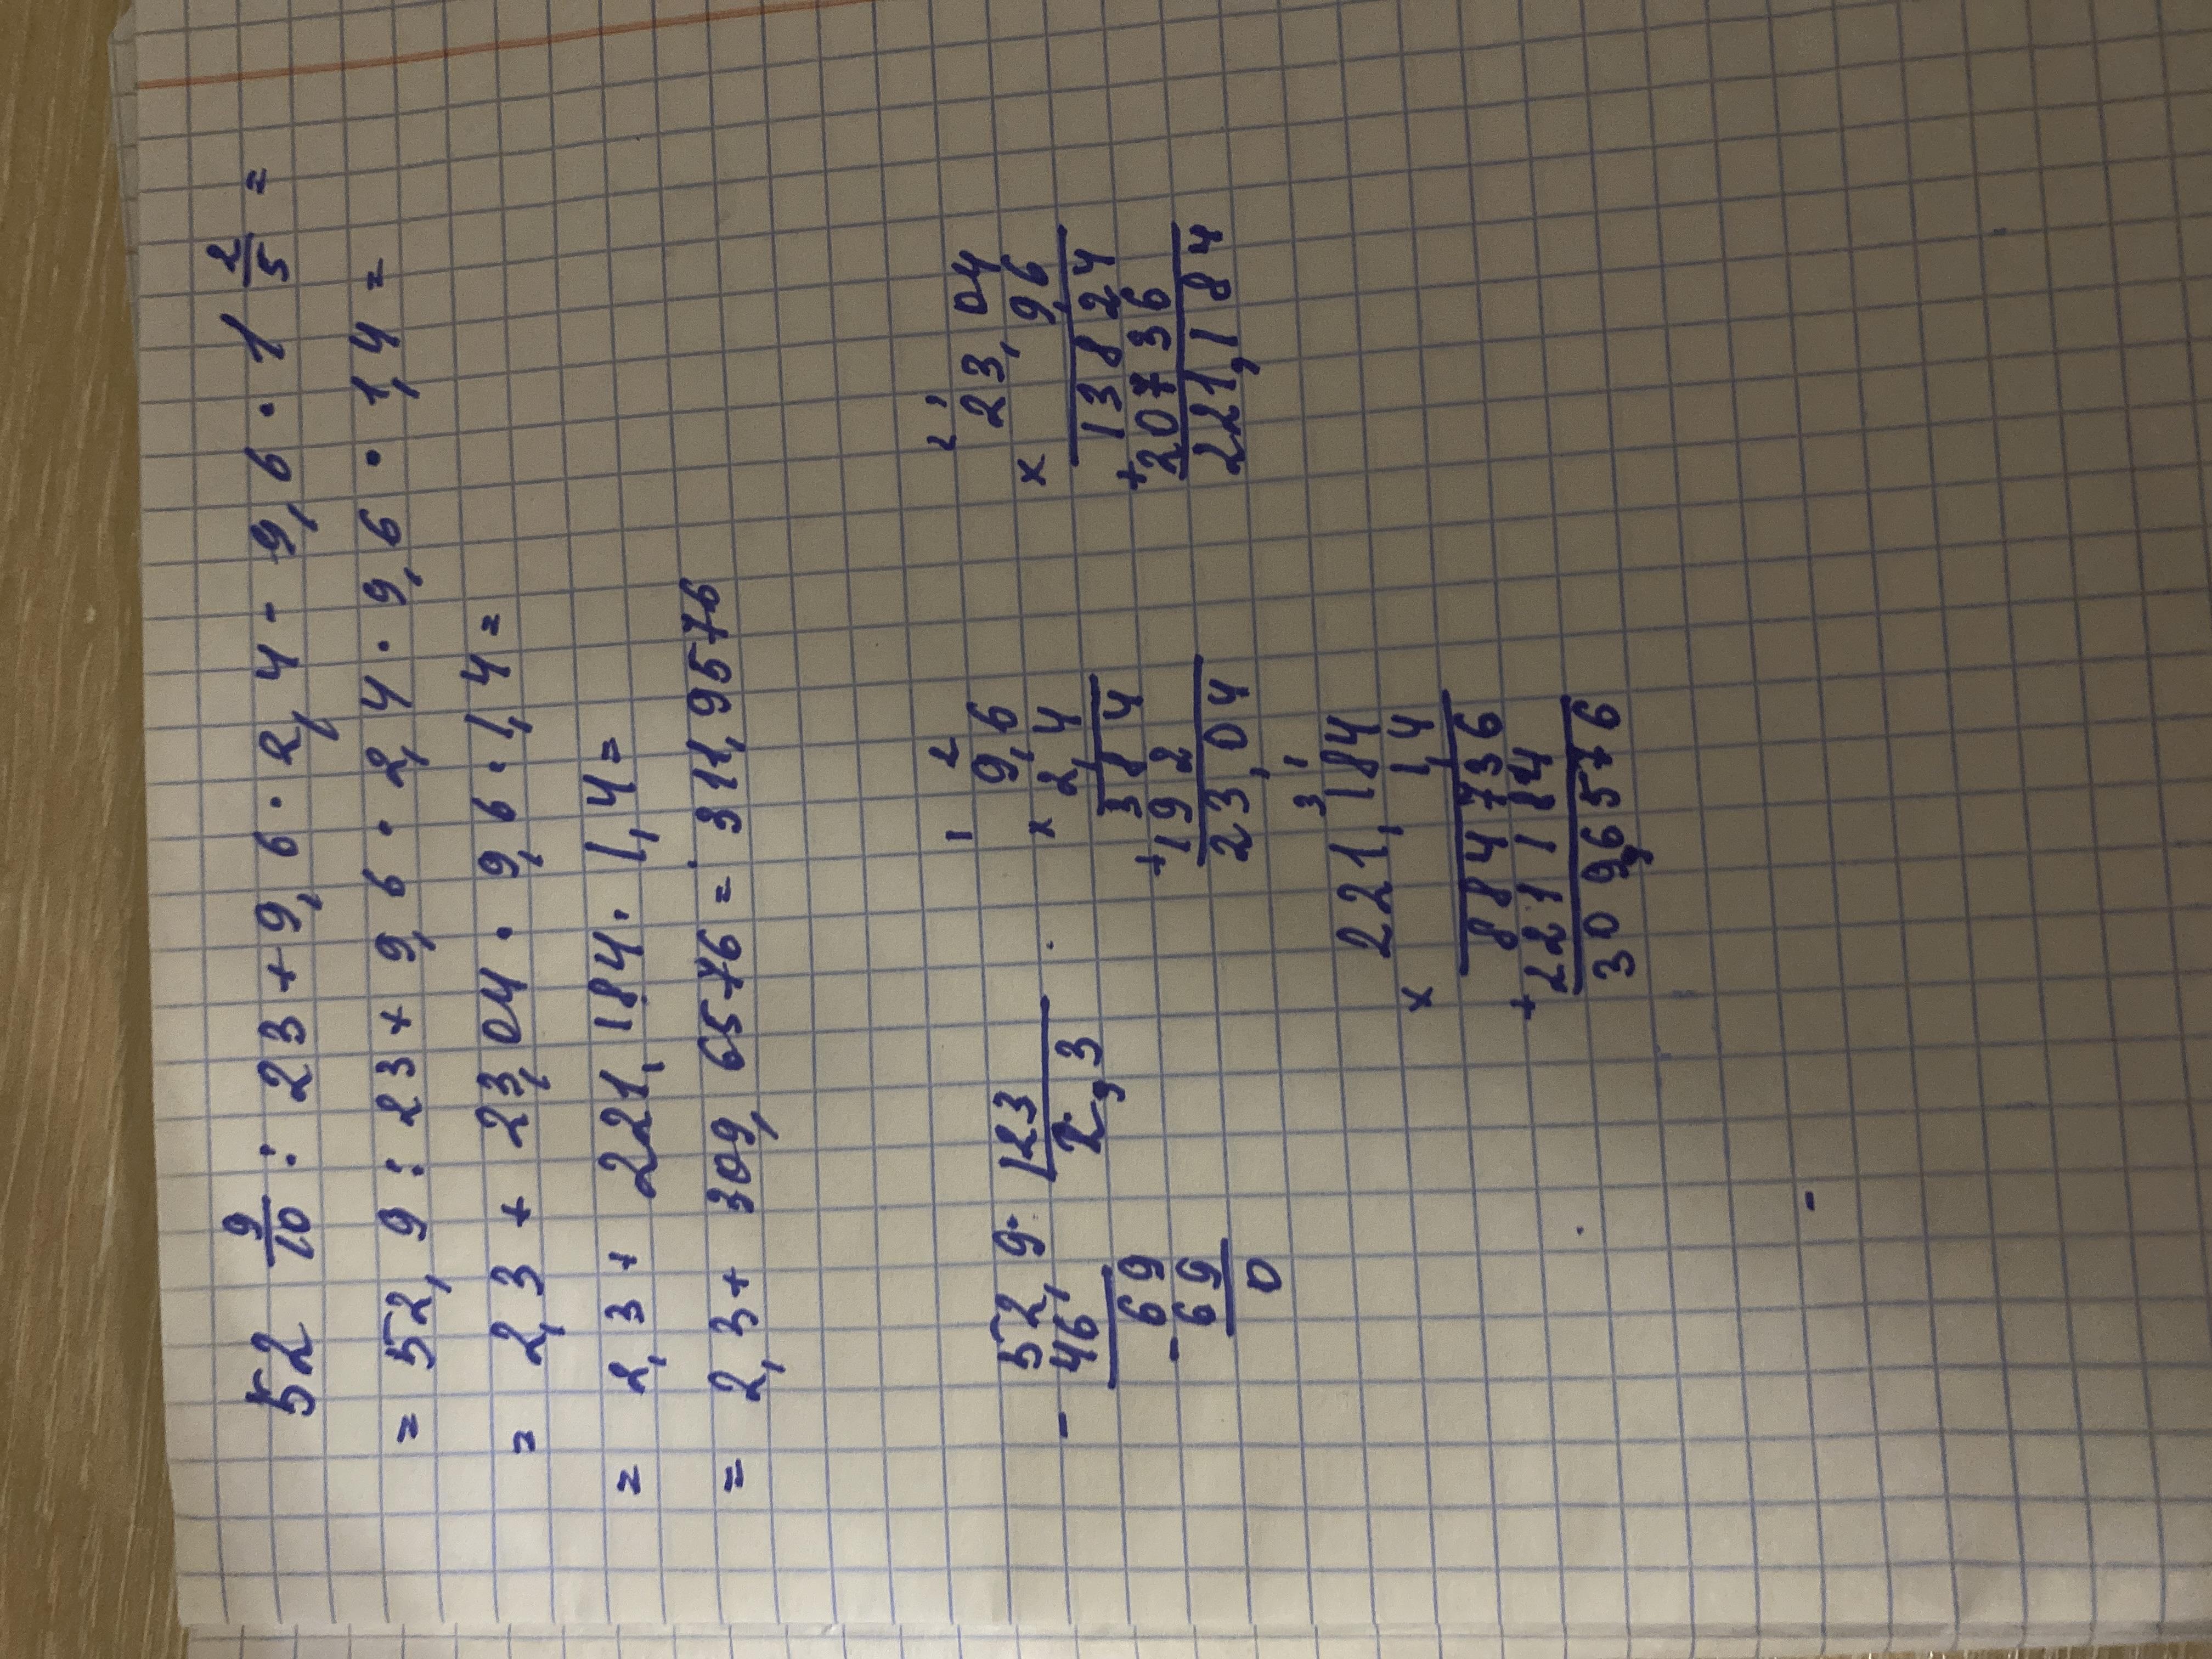 52 9/10 : 23 + 9,6 · 2,4 - 9,6 · 1 2/5 =
= 52,9 : 23 + 9,6 · 2,4 · 9,6 · 1,4 =
= 2,3 + 23,04 · 9,6 · 1,4 =
= 2,3 + 221,184 · 1,4 =
= 2,3 + 309,6576 = 311,9576
- 52,9 | 23
46 | 2,3
- 69
69
0
1 2
9,6
× 2,4
384
+ 192
23,04
2 1
23,04
× 9,6
13824
+ 20736
221,184
3 1
221,184
× 1,4
884736
+ 221184
309,6576